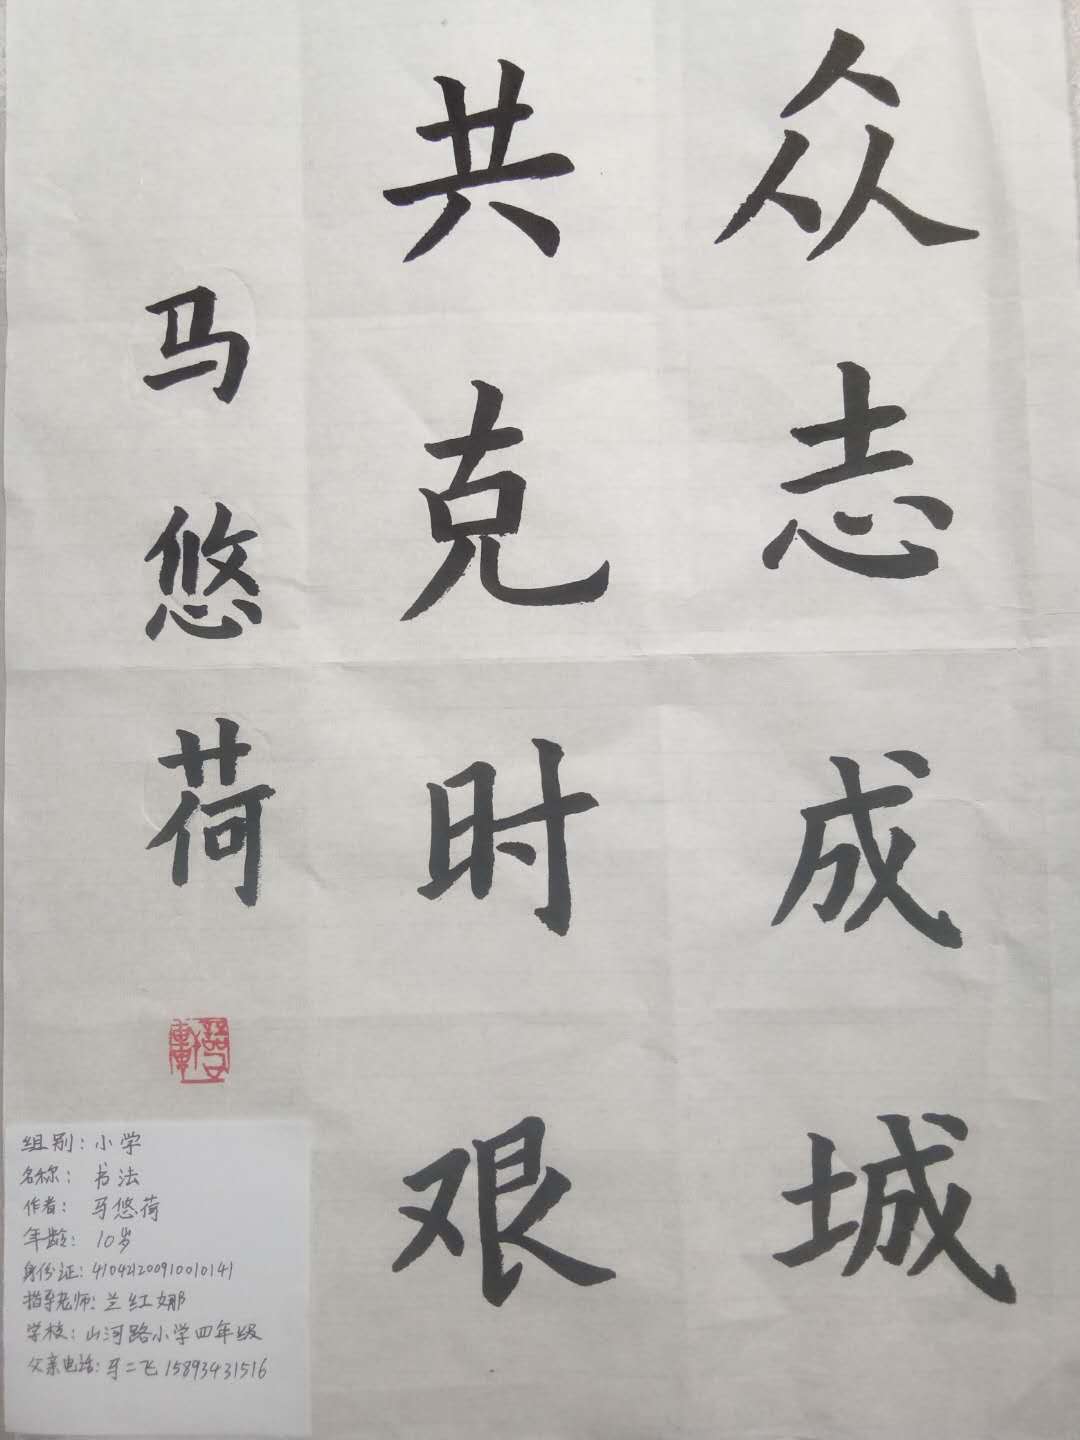 众志成城
共克时艰
马悠荷
组别：小学
名称：书法
作者：马悠荷
年龄：10岁
身份证：410421200910010141
指导老师：兰红娜
学校：山河路小学四年级
父亲电话：马二飞 15893431516